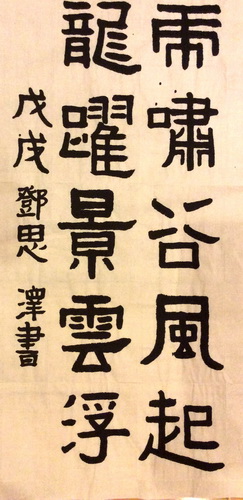 虎嘯谷風起
龍躍景雲浮
戊戌鄧思澤書